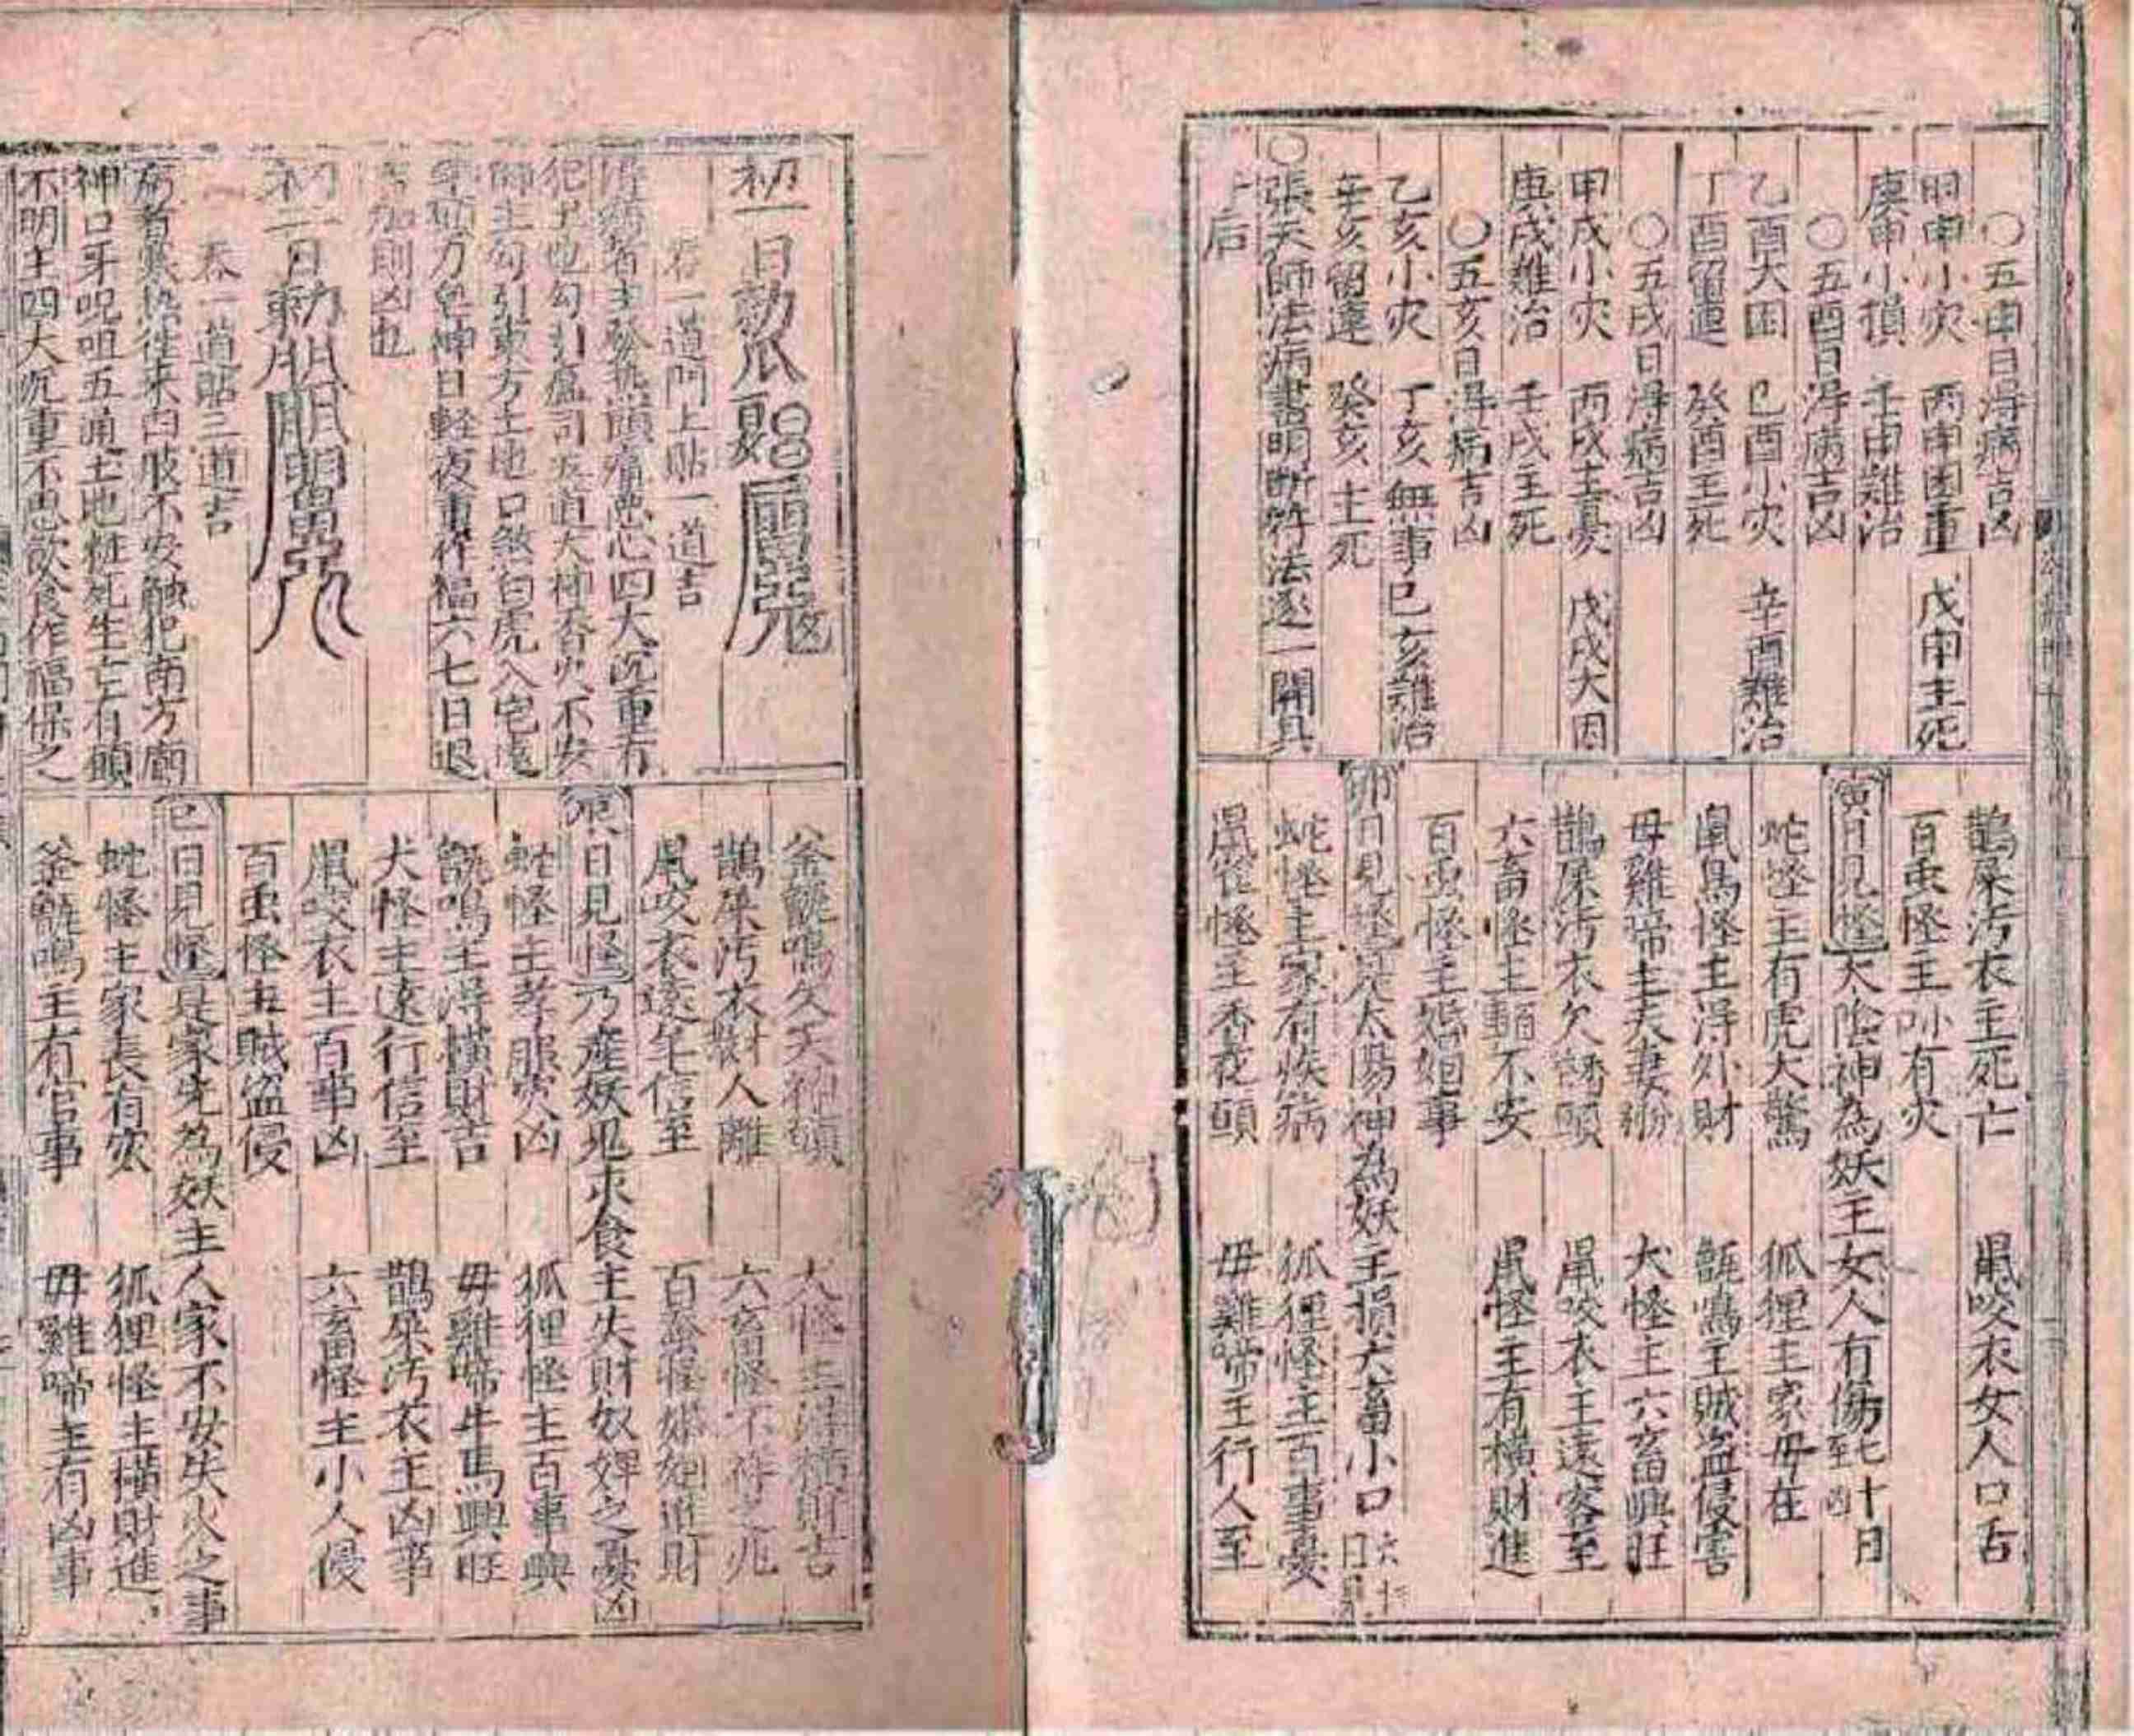 ○五申日淂病吉凶
甲申小灾 丙申困重 戊申主死
庚申小損 壬申难治
○五酉日淂病吉凶
乙酉大困 己酉小灾 辛酉难治
丁酉留連 癸酉主死
○五戌日淂病吉凶
甲戌小灾 丙戌主憂 戊戌大困
庚戌难治 壬戌主死
○五亥日淂病吉凶
乙亥小灾 丁亥無事 己亥难治
辛亥留連 癸亥主死
○張天師法病書明断符法逐一開具
于后
鵲屎汚衣主死亡 鼠咬衣女人口舌
百虫怪主 有灾
寅日見怪 太陰神為妖主女人有傷 十日
蛇怪主有虎犬驚 狐狸主家母在
鼠鳥怪主淂外財 甑鳴主贼盗侵害
母雞啼主夫妻 犬怪主六畜興旺
鵲屎汚衣欠 頭 鼠咬衣主遠客至
六畜怪主 不安 鼠怪主有横財進
百虫怪主婚姻事
卯日見怪是太陽神為妖主損六畜小口
蛇怪主家有疾病 狐狸怪主百事憂
鼠 怪主香花頭 母雞啼主行人至
初一日
吞一道門上貼一道吉
淂病者主發热頭痛惡心四大沉重有
犯 也勾引瘟司 道大神香火不安
師主勾引東方土地口煞白虎入宅
日軽夜重作福六七日退
加則凶也
初二日
吞一道貼三道吉
病者寒热往来四肢不安触犯南方廟
神口牙咒咀五通土地 死生亡有願
不明主四大沉重不思飲食作福保之
釜甑鳴欠天神頭 犬怪主淂横財吉
鵲屎汚衣財人離 六畜怪不祥之兆
鼠咬衣遠年信至 百虫怪婚姻進財
辰日見怪 乃産妖鬼求食主失財奴婢之憂凶
蛇怪主孝服灾凶 狐狸怪主百事興
甑鳴主淂横財吉 母雞啼牛馬興旺
犬怪主遠行信至 鵲屎汚衣主凶事
鼠咬衣主百事凶 六畜怪主小人侵
百虫怪主贼盗侵
巳日見怪 是家先為妖主人家不安失火之事
蛇怪主家長有灾 狐狸怪主横財進
釜甑鳴主有官事 母雞啼主有凶事